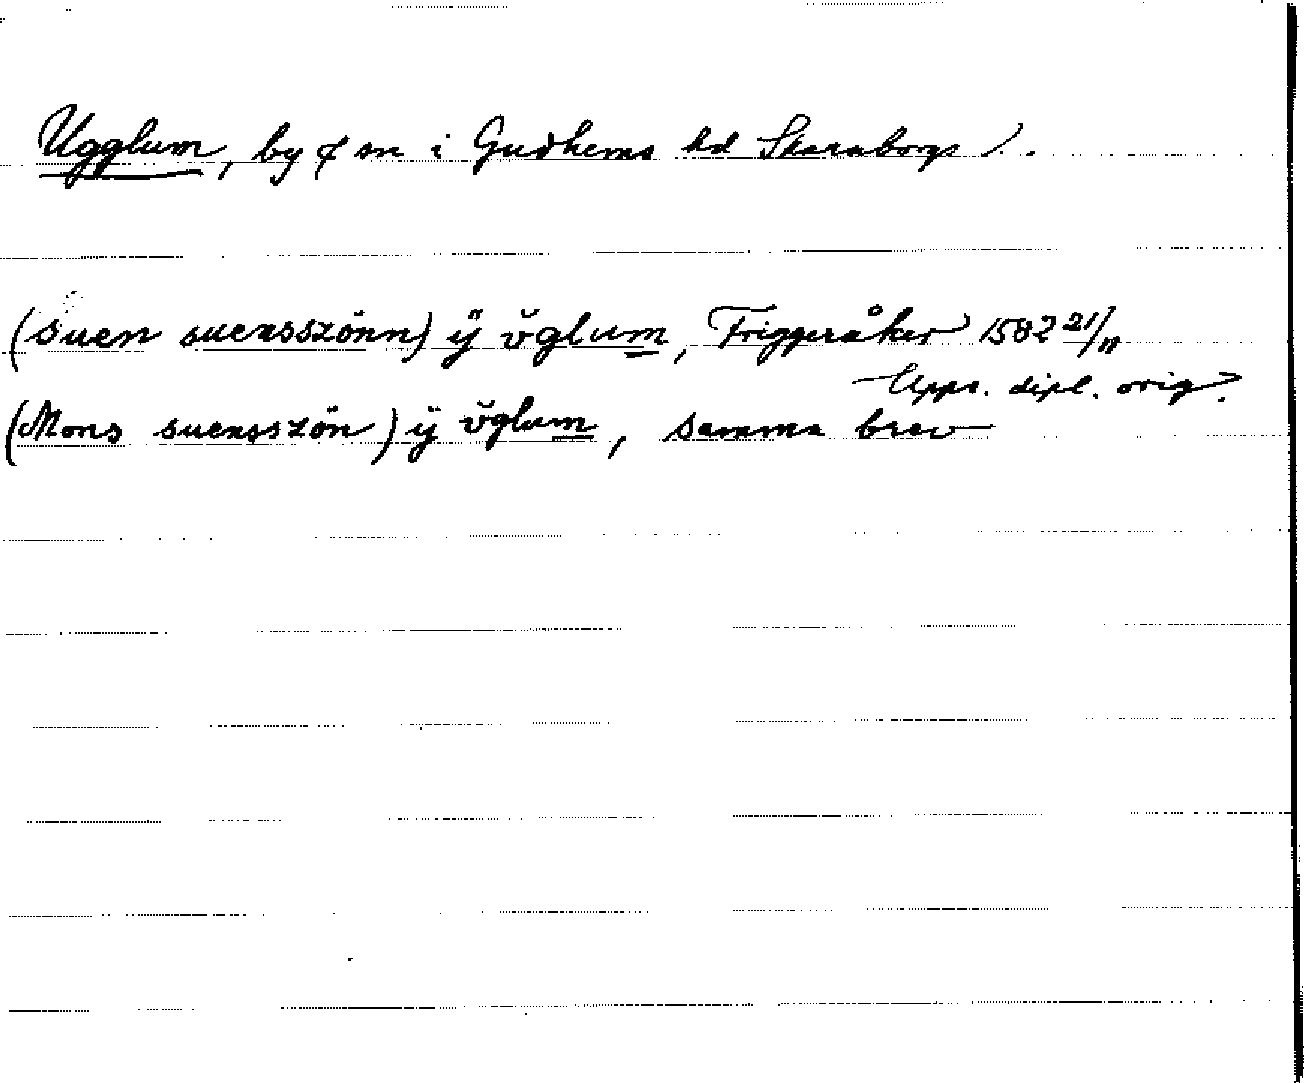 Ugglum, by & sn i Gudhems hd Skaraborgs l.
(suen suensszönn) ÿ v̆glum, Friggeråker 1582 21/11
Upps. dipl. orig.
(Mons suensszön) ÿ v̆glum, samma brev